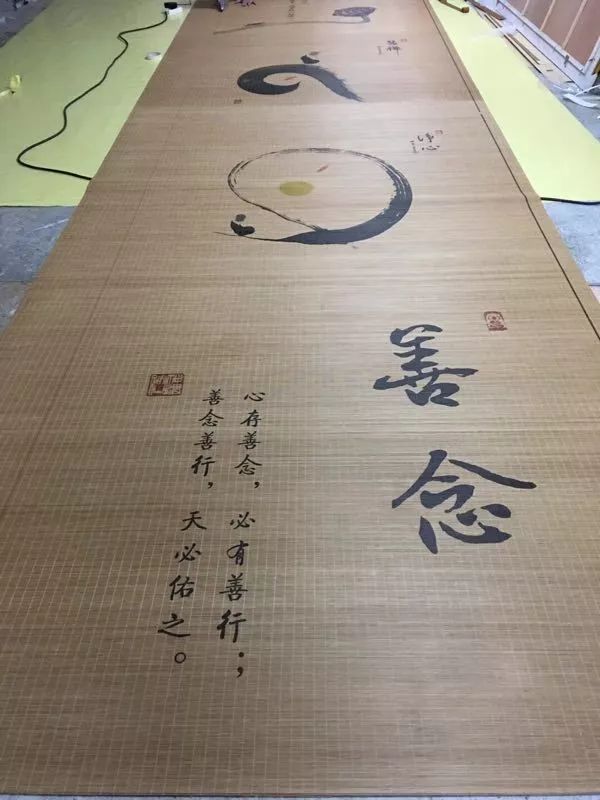 善念
心存善念，必有善行；
善念善行，天必佑之。
净心